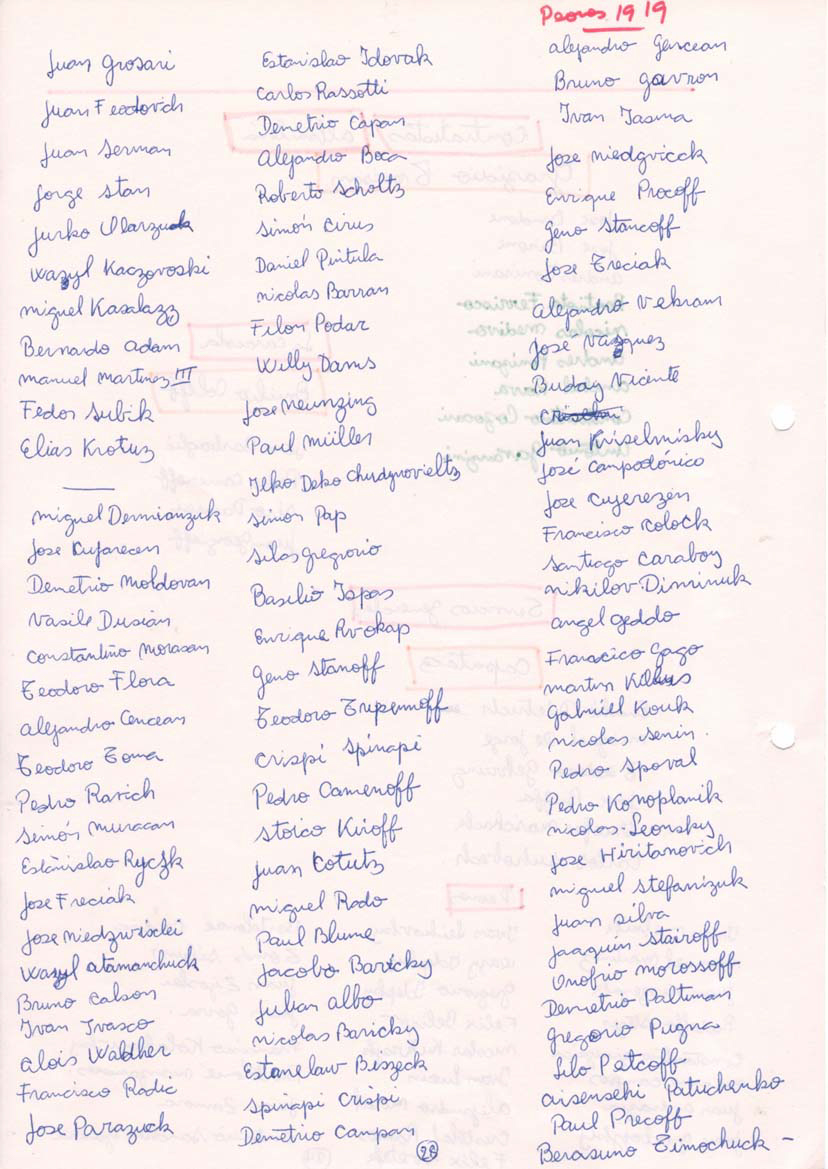 Peores 1919
Juan Grosari
Juan Feodovich
Juan Serman
Jorge Stan
Jurko Olarzuck
Wazyl Kaczovoski
Miguel Kasalazz
Bernardo Adam
Manuel Martinez III
Fedor Subik
Elias Krotuz
Miguel Demianzuk
Jose Kufarecen
Demetrio Moldovan
Vasile Dusian
Constantino Morasan
Teodoro Flora
Alejandro Cencean
Teodoro Toma
Pedro Rarich
Simón Muracan
Estanislao Ryczk
Jose Freciak
Jose Niedzwisclei
Wazyl Atamanchuck
Bruno Calson
Ivan Ivasco
Alois Waldher
Francisco Radic
Jose Parazuck
Estanislao Idovak
Carlos Rassotti
Demetrio Capan
Alejandro Boca
Roberto Scholtz
Simón Cirus
Daniel Pintula
Nicolas Barran
Filon Podar
Willy Dams
Jose Neunzing
Paul Müller
Ilko Deko Churdynovieltz
Simon Pap
Silas Gregorio
Basilio Ispas
Enrique Prokap
Geno Stanoff
Teodoro Trupenmoff
Crispi Spinapi
Pedro Camenoff
Stoico Kiroff
Juan Cotutz
Miguel Rado
Paul Blume
Jacobo Baricky
Julian Albo
Nicolas Baricky
Estanelaw Biszeck
Spinapi Crispi
Demetrio Campan
28
Alejandro Gencean
Bruno Gavron
Ivan Tasma
Jose Niedgvicck
Enrique Procoff
Geno Stancoff
Jose Treciak
Alejandro Vekram
José Vazquez
Buday Vicente
Juan Kriselnisky
José Campodónico
Jose Cujerezen
Francisco Kolock
Santiago Caraboy
Nikilov Diminuk
Angel Geddo
Francisco Gago
Martin
Gabriel Kouk
Nicolas Senin.
Pedro Spoval
Pedro Konoplanik
Nicolas Leonsky
Jose Hiritanovich
Miguel Stefanizuk
Juan Silva
Joaquin Stairoff
Onofrio Morossoff
Demetrio Paltiman
Gregorio Pugna
Lilo Petcoff
Aisenseki Patuchenko
Paul Precoff
Berasuno Timochuck -